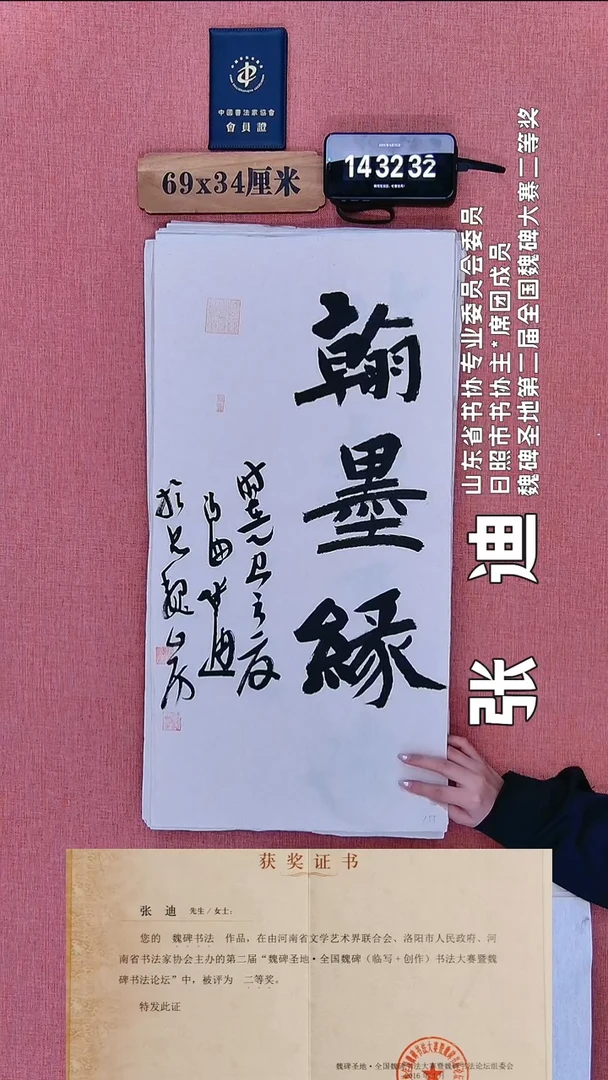 中國書法家協會
會員證
69x34厘米
14 32 32
翰墨緣
山东省书协专业委员会委员
日照市书协主*席团成员
魏碑圣地第二届全国魏碑大赛二等奖
张迪
获奖证书
张 迪 先生/女士:
您的 魏碑书法 作品,在由河南省文学艺术界联合会、洛阳市人民政府、河
南省书法家协会主办的第二届“魏碑圣地·全国魏碑(临写+创作)书法大赛暨魏
碑书法论坛”中,被评为 二等奖。
特发此证
魏碑圣地·全国魏碑书法大赛暨魏碑书法论坛组委会